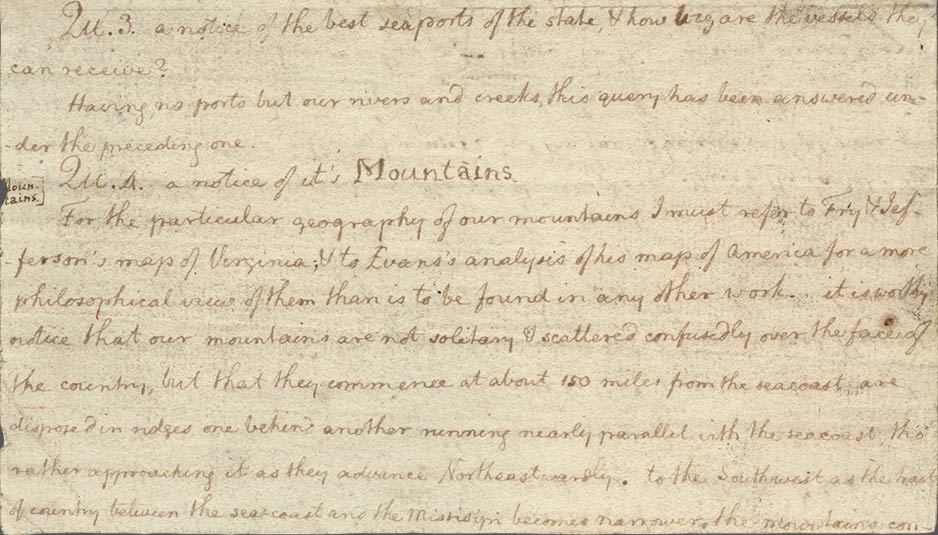 Qu. 3. a notice of the best seaports of the state, & how big are the vessels they
can receive?
Having no ports but our rivers and creeks, this query has been answered un-
-der the preceding one.
Qu. 4. a notice of it's Mountains
Moun-
tains.
For the particular geography of our mountains I must refer to Fry & Jef-
-ferson's map of Virginia; & to Evans's analysis of his map of America for a more
philosophical view of them than is to be found in any other work. it is worthy
notice that our mountains are not solitary & scattered confusedly over the face of
the country, but that they commence at about 150 miles from the seacoast, are
disposed in ridges one behind another running nearly parallel with the seacoast, tho'
rather approaching it as they advance Northeastwardly. to the Southwest as the tract
of country between the seacoast and the Missisipi becomes narrower, the mountains con-